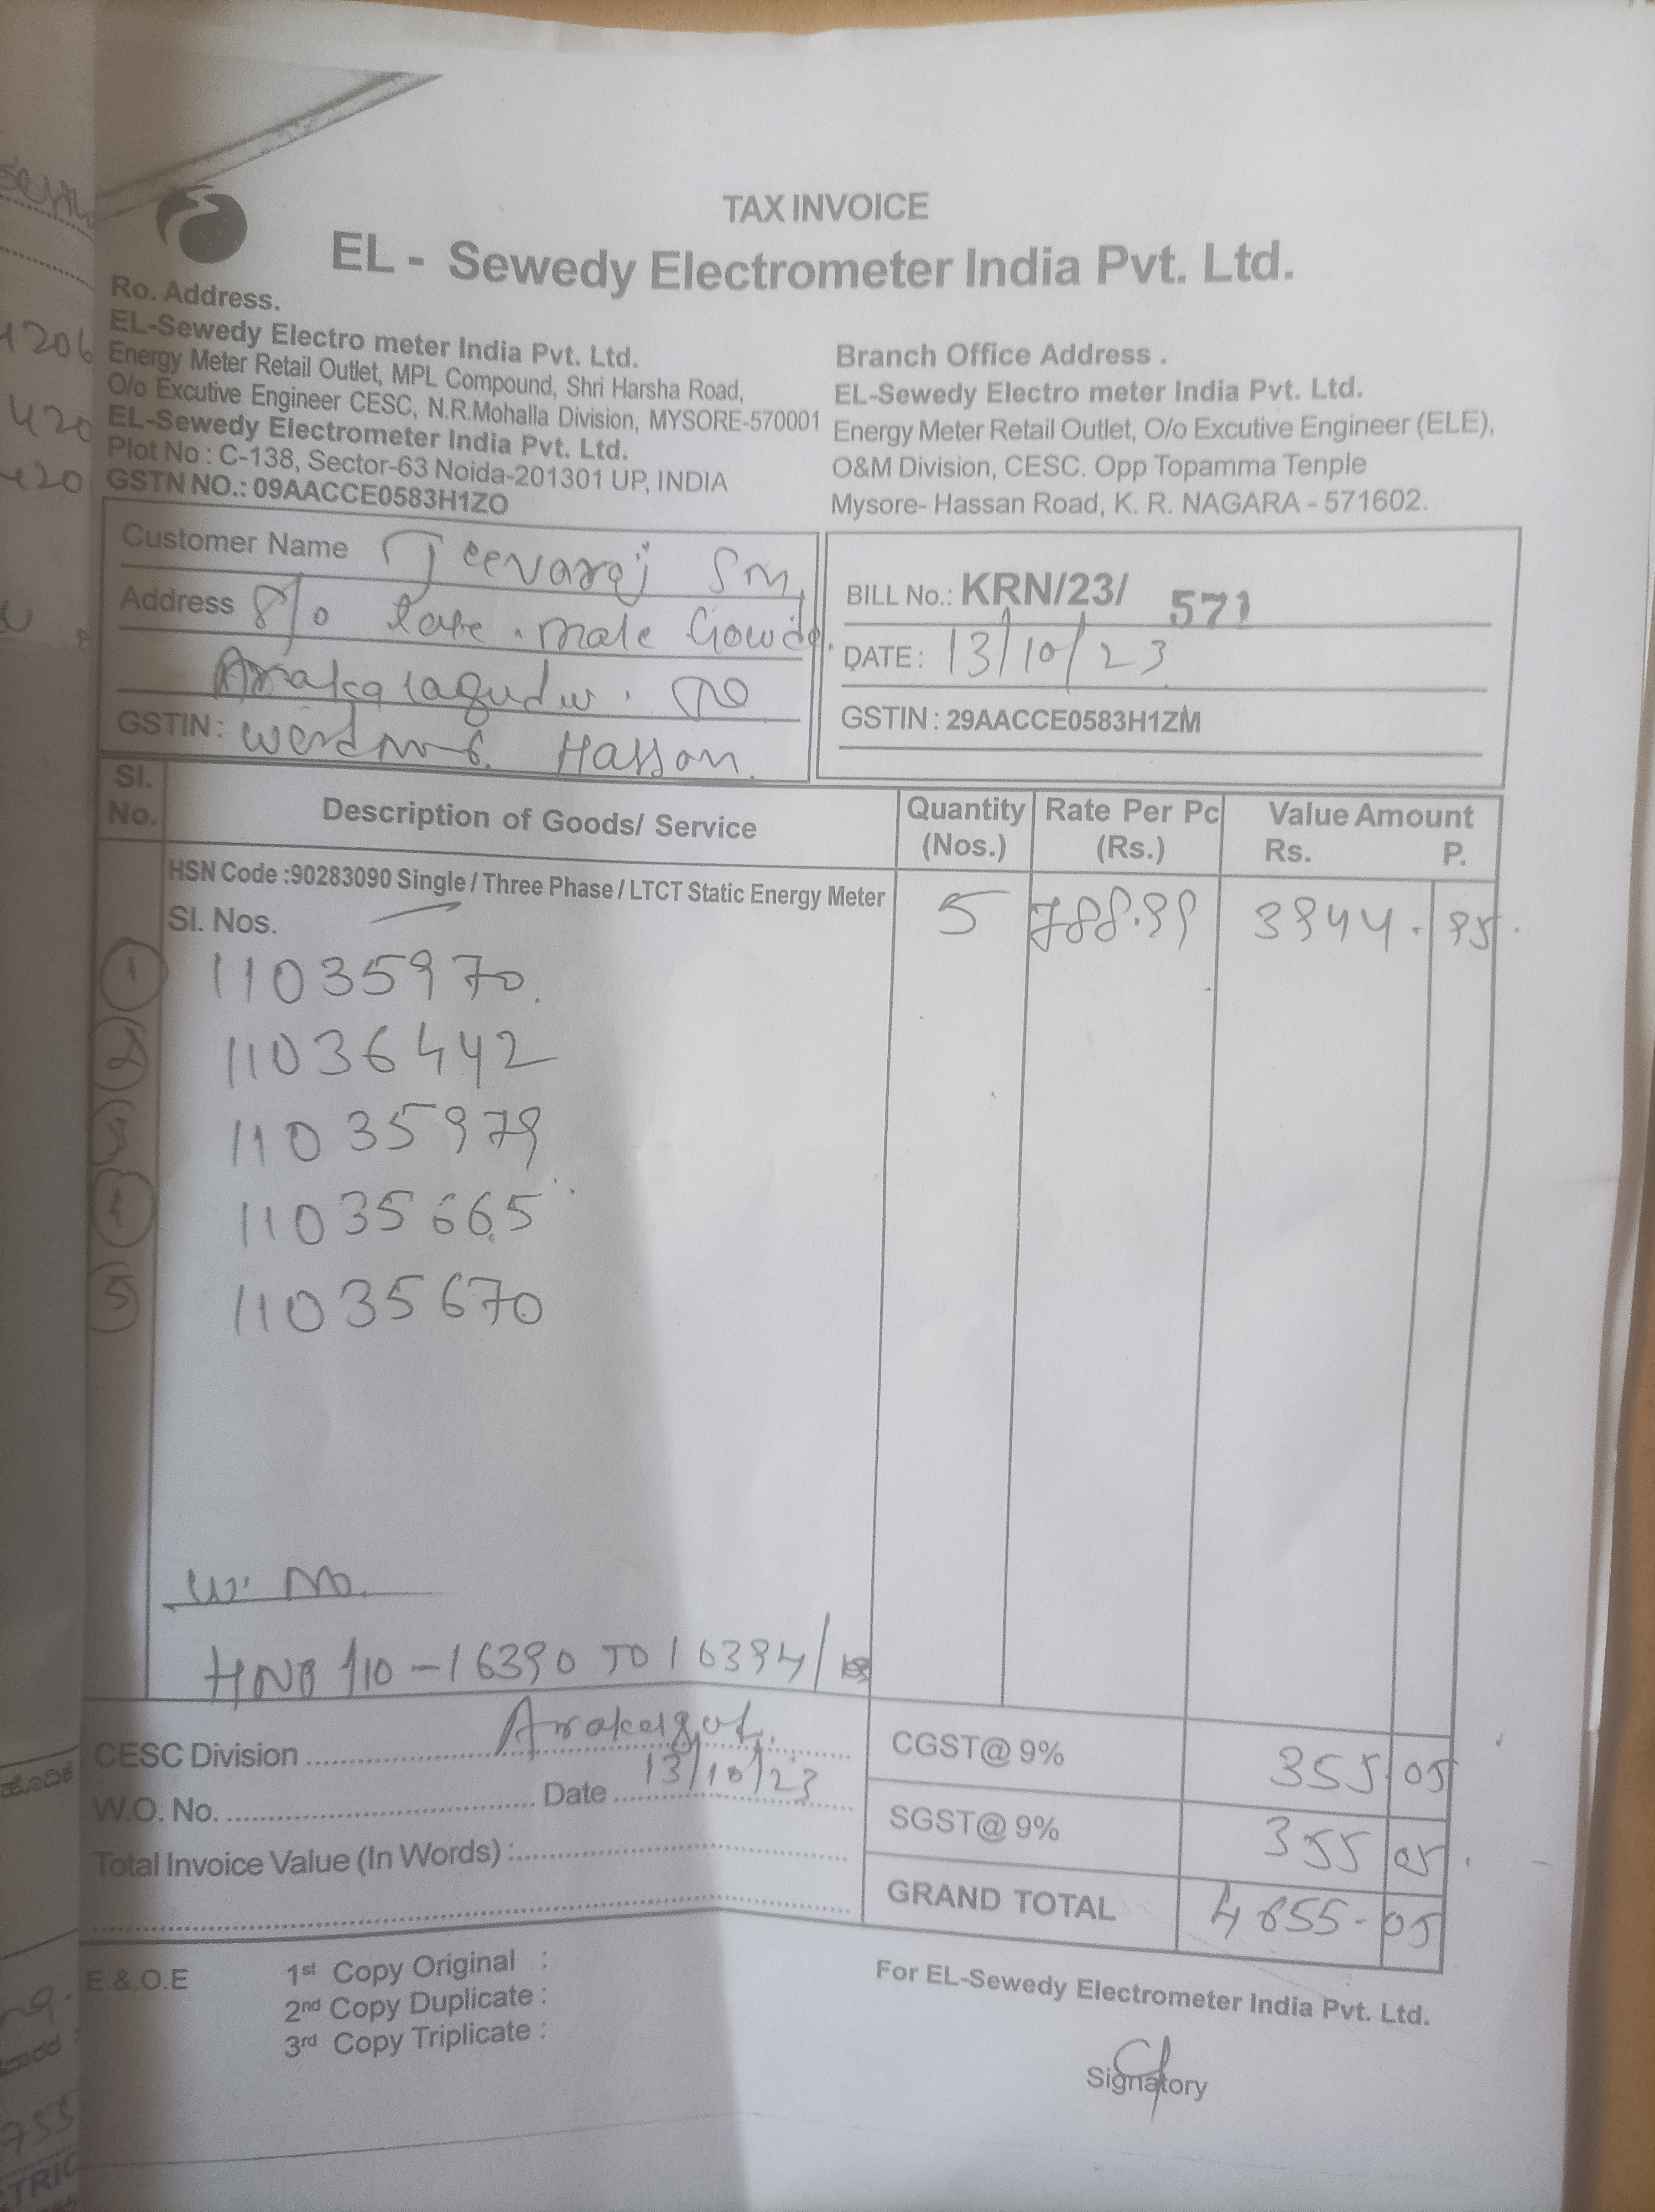 TAX INVOICE
EL - Sewedy Electrometer India Pvt. Ltd.
Ro. Address.
EL-Sewedy Electro meter India Pvt. Ltd.
Energy Meter Retail Outlet, MPL Compound, Shri Harsha Road,
O/o Excutive Engineer CESC, N.R.Mohalla Division, MYSORE-570001
EL-Sewedy Electrometer India Pvt. Ltd.
Plot No : C-138, Sector-63 Noida-201301 UP, INDIA
GSTN NO.: 09AACCE0583H1ZO
Branch Office Address .
EL-Sewedy Electro meter India Pvt. Ltd.
Energy Meter Retail Outlet, O/o Excutive Engineer (ELE),
O&M Division, CESC. Opp Topamma Tenple
Mysore- Hassan Road, K. R. NAGARA - 571602.
Customer Name Jeevaraj Sm
Address S/o late. male Gowda.
Arrakalagudu.
GSTIN : Hassan.
BILL No.: KRN/23/ 571
DATE : 13/10/23
GSTIN : 29AACCE0583H1ZM
Sl. No. Description of Goods/ Service Quantity (Nos.) Rate Per Pc (Rs.) Value Amount Rs. P.
HSN Code :90283090 Single / Three Phase / LTCT Static Energy Meter 5 788.99 3944. 95
Sl. Nos.
1 11035970
2 11036442
3 11035979
4 11035665
5 11035670
W. No.
110 - 16390 TO 16394/
CESC Division
W.O. No. Date 13/10/23
Total Invoice Value (In Words) :
CGST@ 9% 355 05
SGST@ 9% 355 05
GRAND TOTAL 4655- 05
E.&.O.E
1st Copy Original :
2nd Copy Duplicate :
3rd Copy Triplicate :
For EL-Sewedy Electrometer India Pvt. Ltd.
Signatory
1206
420
420
755
TRIC